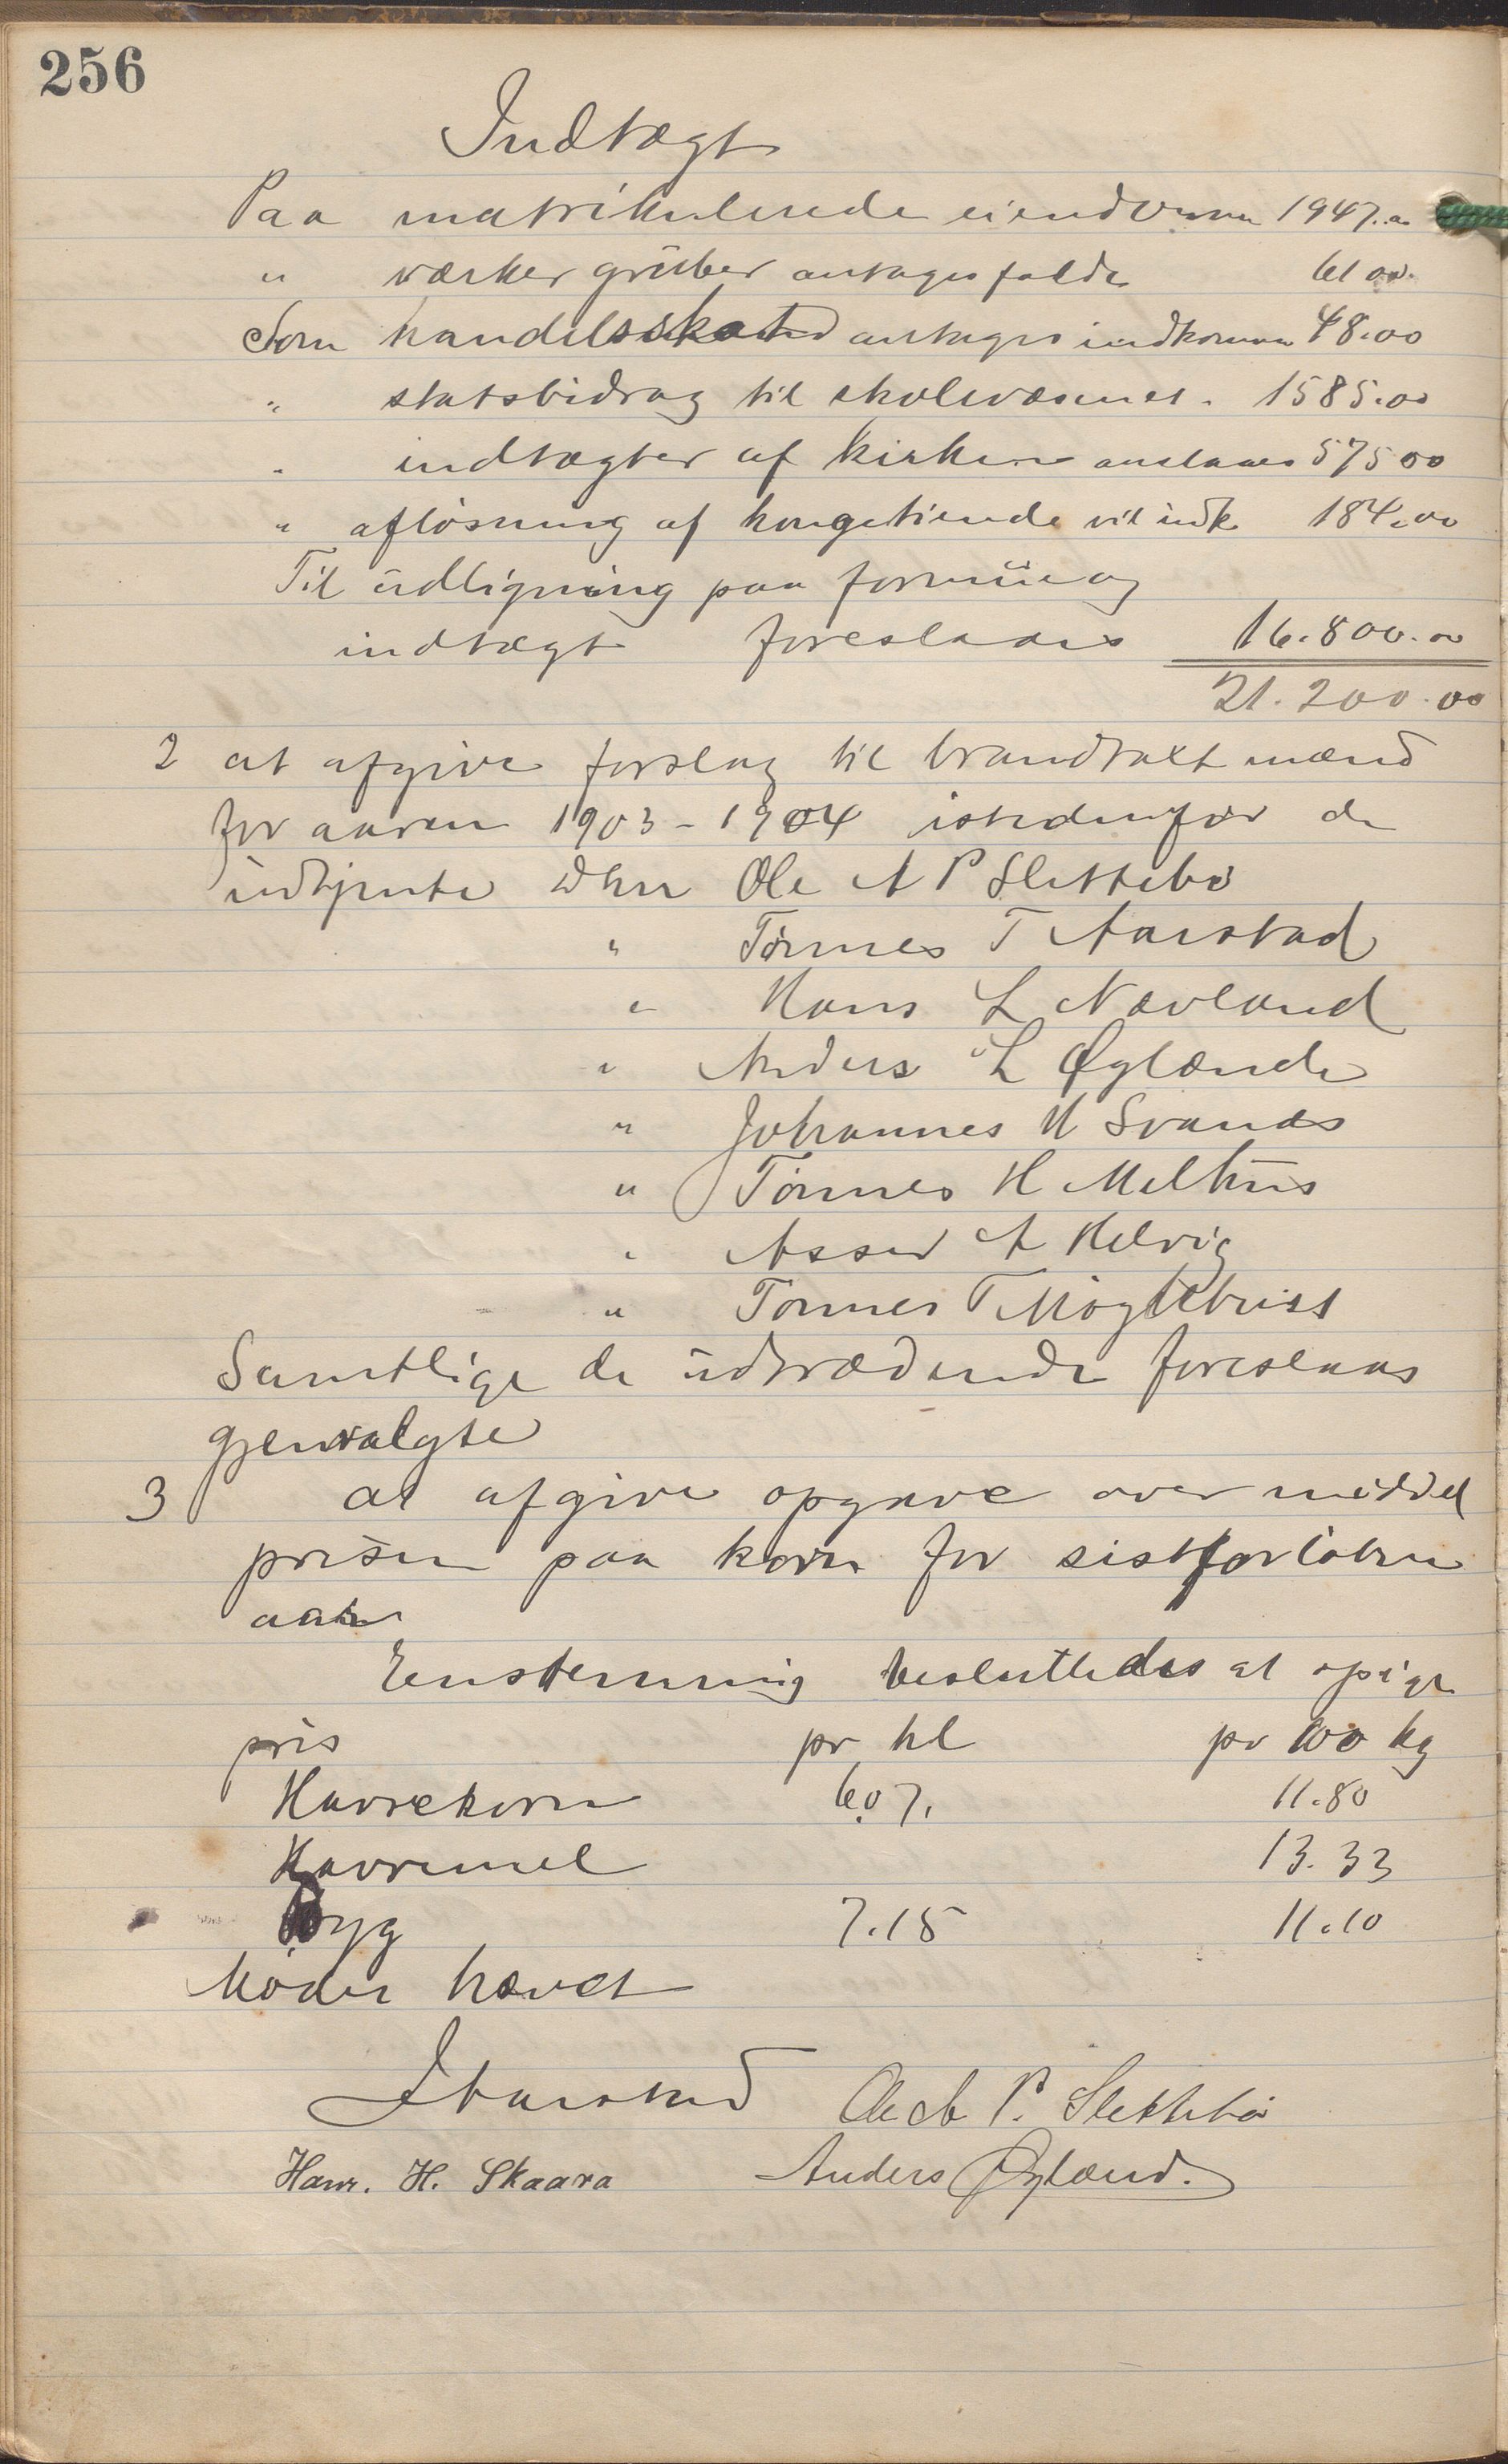 256
Indtægt
Paa matrikulerede eiendomme 1947.00
" værker grüber antages falde 61 00
Som handelsskat antages indkomme 48.00
" statsbidrag til skolevæsenet. 1585.00
" indtægter af kirken anslaaes 575 00
" afløsning af kongetiende vil indk 184.00
Til üdligning paa formüe og
indtægt foreslaaes 16.800.00
21.200.00
2 at afgive forslag til brandtakt mænd
for aaren 1903-1904 istedenfor de
üdtjente Dhrr Ole A P Slettebø
" Tønnes T Aarstad
" Hans L Nævland
" Anders L Øglænd
" Johannes H Svanes
" Tønnes H Melhüs
" Asser A Helvig
" Tønnes T Møgletveist
Samtlige de üdtrædende foreslaaes
gjenvalgte
3 at afgive opgave over middel
prisen paa korn for sistforløbne
aar
Enstemmig besluttedes at opgive
pris pr hl pr 100 kg
Havrekorn 6.07. 11.80
Havremel 13.33
Byg 7.15 11.10
Mødet hævet
Aarstad Ole A P. Slettebø
Hans. H. Skaara Anders Øglænd.